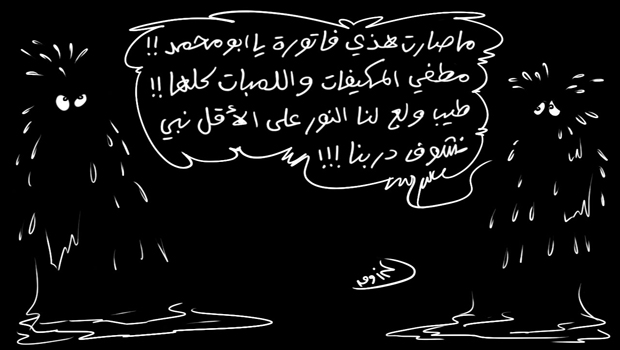 ما صارت هذي فاتورة يا ابو محمد !!
مطفي المكيفات واللمبات كلها !!
طيب ولع لنا النور على الأقل نبي
نشوف دربنا !!!